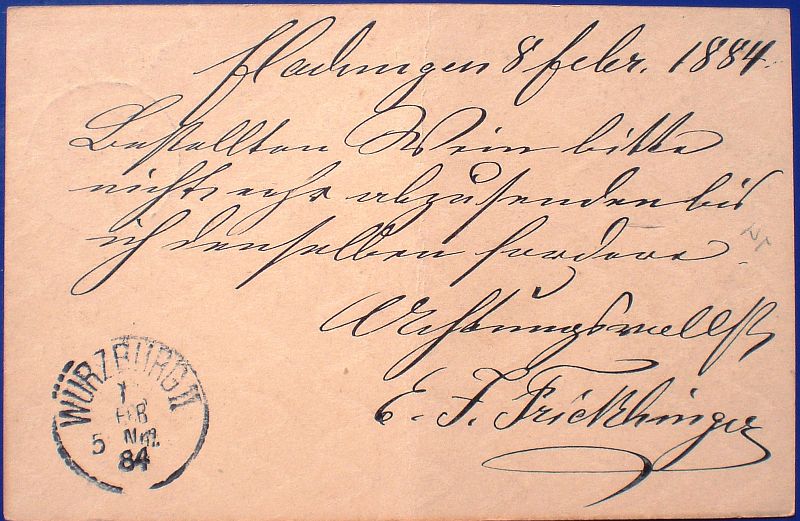 Fladungen 8 Febr. 1884.
Bestellten Wein bitte
nicht eher abzusenden bis
ich denselben fordere.
Achtungsvollst
E. F. Fricklinger
WÜRZBURG II
FEB
5 Nm.
84